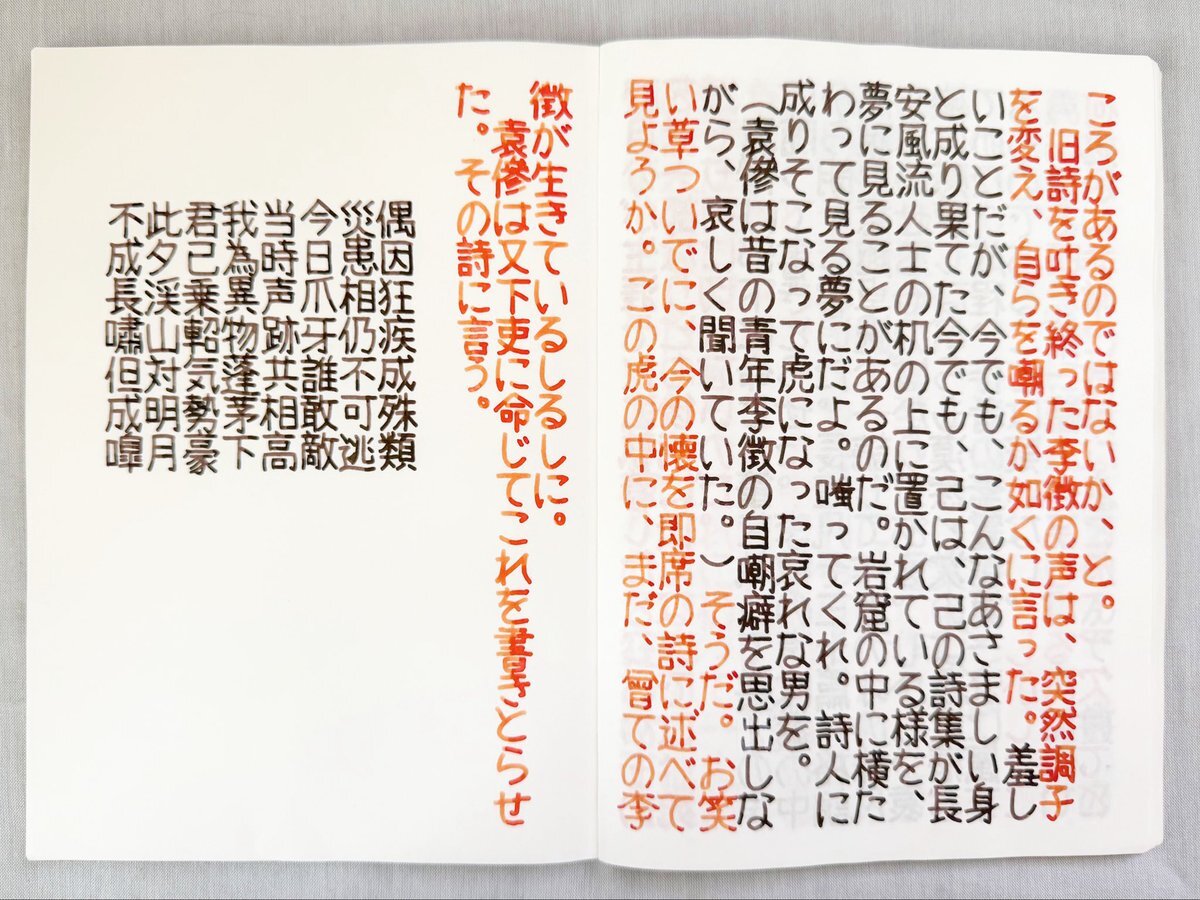 ころがあるのではないか、と。
旧詩を吐き終った李徴の声は、突然調子
を変え、自らを嘲るか如くに言った。羞し
いことだが、今でも、こんなあさましい身
と成り果てた今でも、己は、己の詩集が長
安風流人士の机の上に置かれている様を、
夢に見ることがあるのだ。岩窟の中に横た
わって見る夢にだよ。嗤ってくれ。詩人に
成りそこなって虎になった哀れな男を。
（袁傪は昔の青年李徴の自嘲癖を思出しな
がら、哀しく聞いていた。）そうだ。お笑
い草ついでに、今の懐を即席の詩に述べて
見ようか。この虎の中に、まだ、曾ての李
徴が生きているしるしに。
袁傪は又下吏に命じてこれを書きとらせ
た。その詩に言う。
偶因狂疾成殊類
災患相仍不可逃
今日爪牙誰敢敵
当時声跡共相高
我為異物蓬茅下
君已乗軺気勢豪
此夕渓山対明月
不成長嘯但成嘷